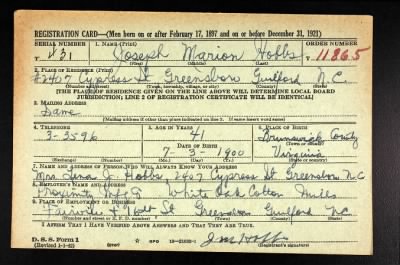 REGISTRATION CARD—(Men born on or after February 17, 1897 and on or before December 31, 1921)
SERIAL NUMBER 1. NAME (Print) ORDER NUMBER
Joseph Marion Hobbs 11865
2. PLACE OF RESIDENCE (Print)
2407 Cypress St. Greensboro Guilford N.C.
(Number and street) (Town, township, village, or city) (County) (State)
[THE PLACE OF RESIDENCE GIVEN ON THE LINE ABOVE WILL DETERMINE LOCAL BOARD
JURISDICTION; LINE 2 OF REGISTRATION CERTIFICATE WILL BE IDENTICAL]
3. MAILING ADDRESS
Same
[Mailing address if other than place indicated on line 2. If same insert word same]
4. TELEPHONE 5. AGE IN YEARS 6. PLACE OF BIRTH
3-3596 41 Brunswick County
DATE OF BIRTH (Town or county)
7-3-1900 Virginia
(Exchange) (Number) (Mo.) (Day) (Yr.) (State or country)
7. NAME AND ADDRESS OF PERSON WHO WILL ALWAYS KNOW YOUR ADDRESS
Mrs. Lena J. Hobbs, 2407 Cypress St Greensboro N.C
8. EMPLOYER'S NAME AND ADDRESS
Proximity Mfg Co White Oak Cotton Mills
9. PLACE OF EMPLOYMENT OR BUSINESS
Fairview St Greensboro Guilford N.C.
(Number and street or R. F. D. number) (Town) (County) (State)
I AFFIRM THAT I HAVE VERIFIED ABOVE ANSWERS AND THAT THEY ARE TRUE.
D. S. S. Form 1 GPO 16—21630-1 J M Hobbs
(Revised 1-1-42) (over) (Registrant's signature)